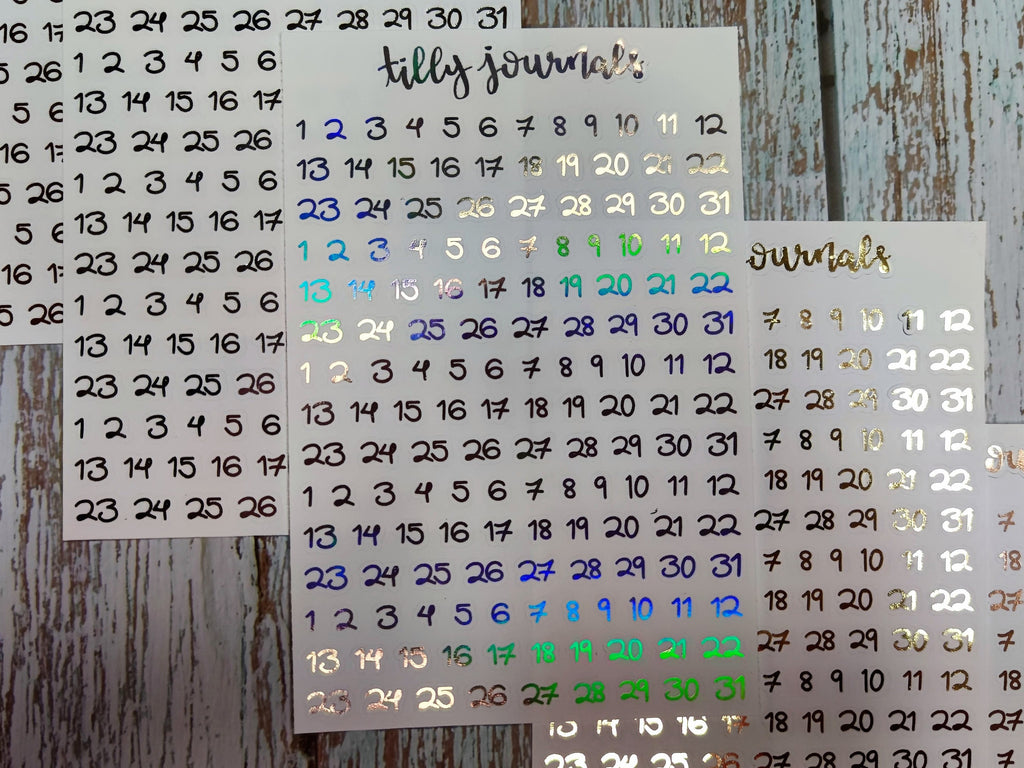 16
26
5 6
16
26
5 6
16
26
23 24 25 26 27 28 29 30 31
1 2 3 4 5 6
13 14 15 16 17
23 24 25 26
1 2 3 4 5 6
13 14 15 16 17
23 24 25 26
1 2 3 4 5 6
13 14 15 16 17
23 24 25 26
1 2 3 4 5 6
13 14 15 16 17
23 24 25 26
tilly journals
1 2 3 4 5 6 7 8 9 10 11 12
13 14 15 16 17 18 19 20 21 22
23 24 25 26 27 28 29 30 31
1 2 3 4 5 6 7 8 9 10 11 12
13 14 15 16 17 18 19 20 21 22
23 24 25 26 27 28 29 30 31
1 2 3 4 5 6 7 8 9 10 11 12
13 14 15 16 17 18 19 20 21 22
23 24 25 26 27 28 29 30 31
1 2 3 4 5 6 7 8 9 10 11 12
13 14 15 16 17 18 19 20 21 22
23 24 25 26 27 28 29 30 31
1 2 3 4 5 6 7 8 9 10 11 12
13 14 15 16 17 18 19 20 21 22
23 24 25 26 27 28 29 30 31
ournals
7 8 9 10 11 12
18 19 20 21 22
27 28 29 30 31
7 8 9 10 11 12
18 19 20 21 22
27 28 29 30 31
7 8 9 10 11 12
18 19 20 21 22
27 28 29 30 31
7 8 9 10 11 12
13 14 15 16 17 18 19 20 21 22
23 24 25 26 27 28 29 30 31
7
18
27
7
18
27
7